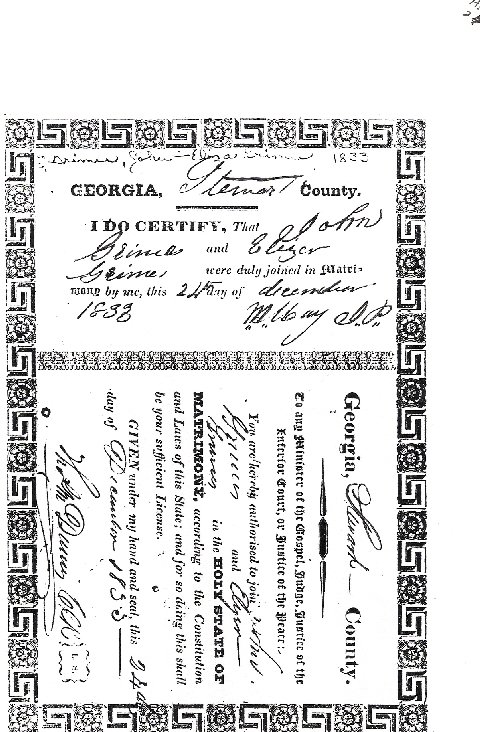 Grimes, John - Eliza Grimes 1833
GEORGIA, Stewart County.
I DO CERTIFY, That John
Grimes and Elizer
Grimes were duly joined in Matri-
mony by me, this 24 day of december
1833 J.P.
Georgia, Stewart County.
To any Minister of the Gospel, Judge, Justice of the
Inferior Court, or Justice of the Peace:
You are hereby authorised to join John
Grimes and Elizer
Grimes in the HOLY STATE OF
MATRIMONY, according to the Constitution
and Laws of this State; and for so doing this shall
be your sufficient License.
GIVEN under my hand and seal, this 24
day of December 1833
L.S.